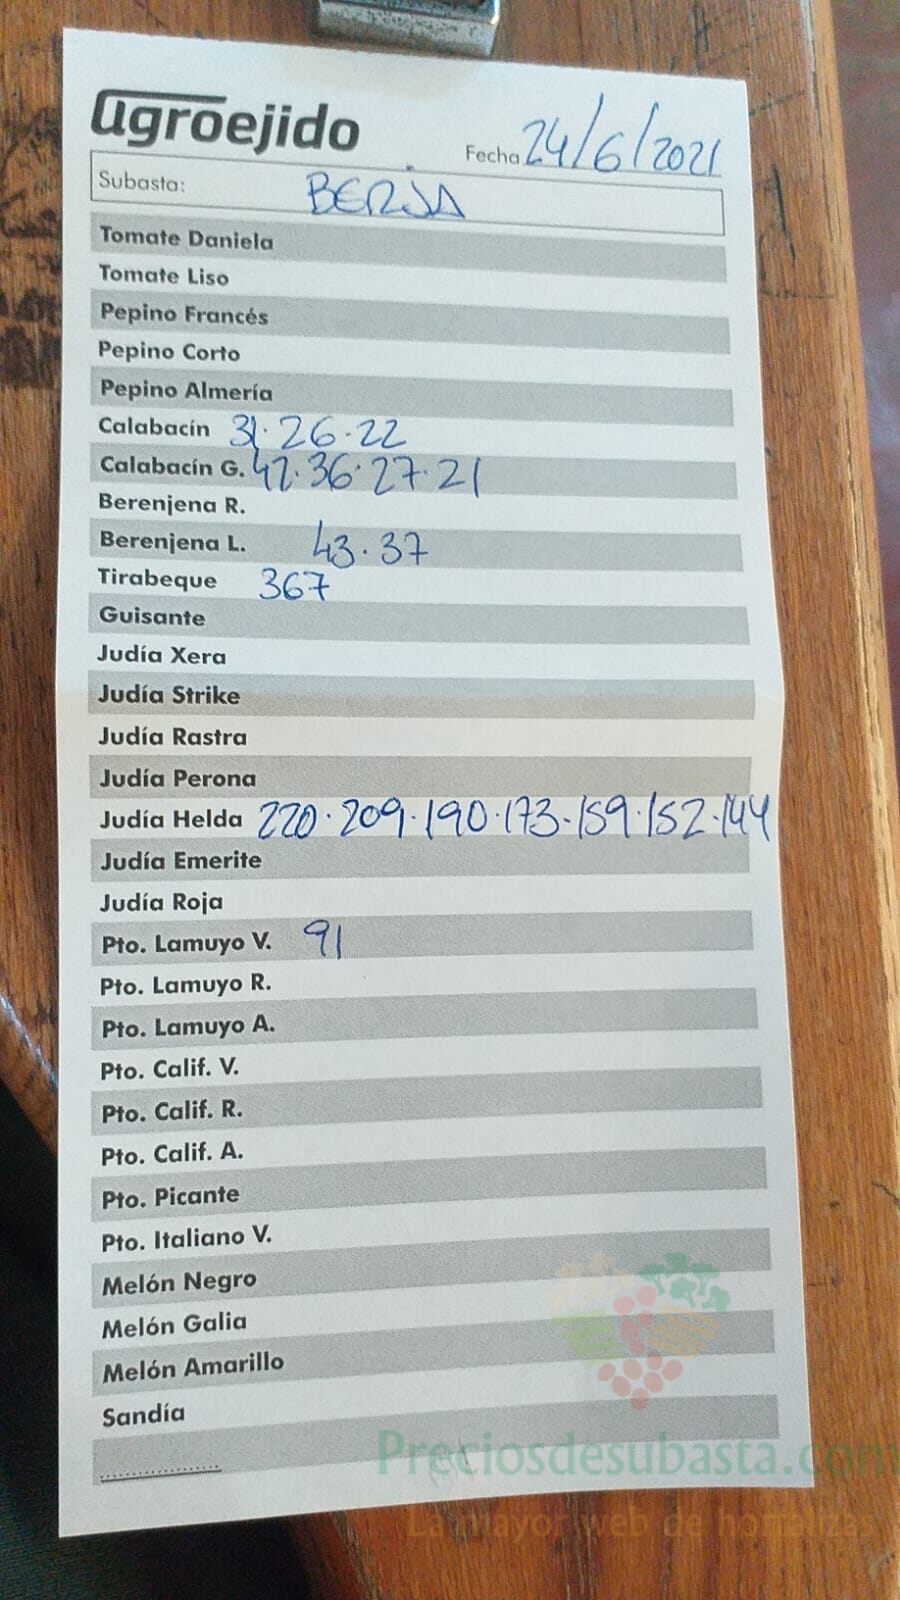 agroejido
Fecha 24/6/2021
Subasta: BERJA
Tomate Daniela
Tomate Liso
Pepino Francés
Pepino Corto
Pepino Almería
Calabacín 31·26·22
Calabacín G. 42·36·27·21
Berenjena R.
Berenjena L. 43·37
Tirabeque 367
Guisante
Judía Xera
Judía Strike
Judía Rastra
Judía Perona
Judía Helda 220·209·190·173·159·152·144
Judía Emerite
Judía Roja
Pto. Lamuyo V. 91
Pto. Lamuyo R.
Pto. Lamuyo A.
Pto. Calif. V.
Pto. Calif. R.
Pto. Calif. A.
Pto. Picante
Pto. Italiano V.
Melón Negro
Melón Galia
Melón Amarillo
Sandía
Preciosdesubasta.com
La mayor web de hortalizas